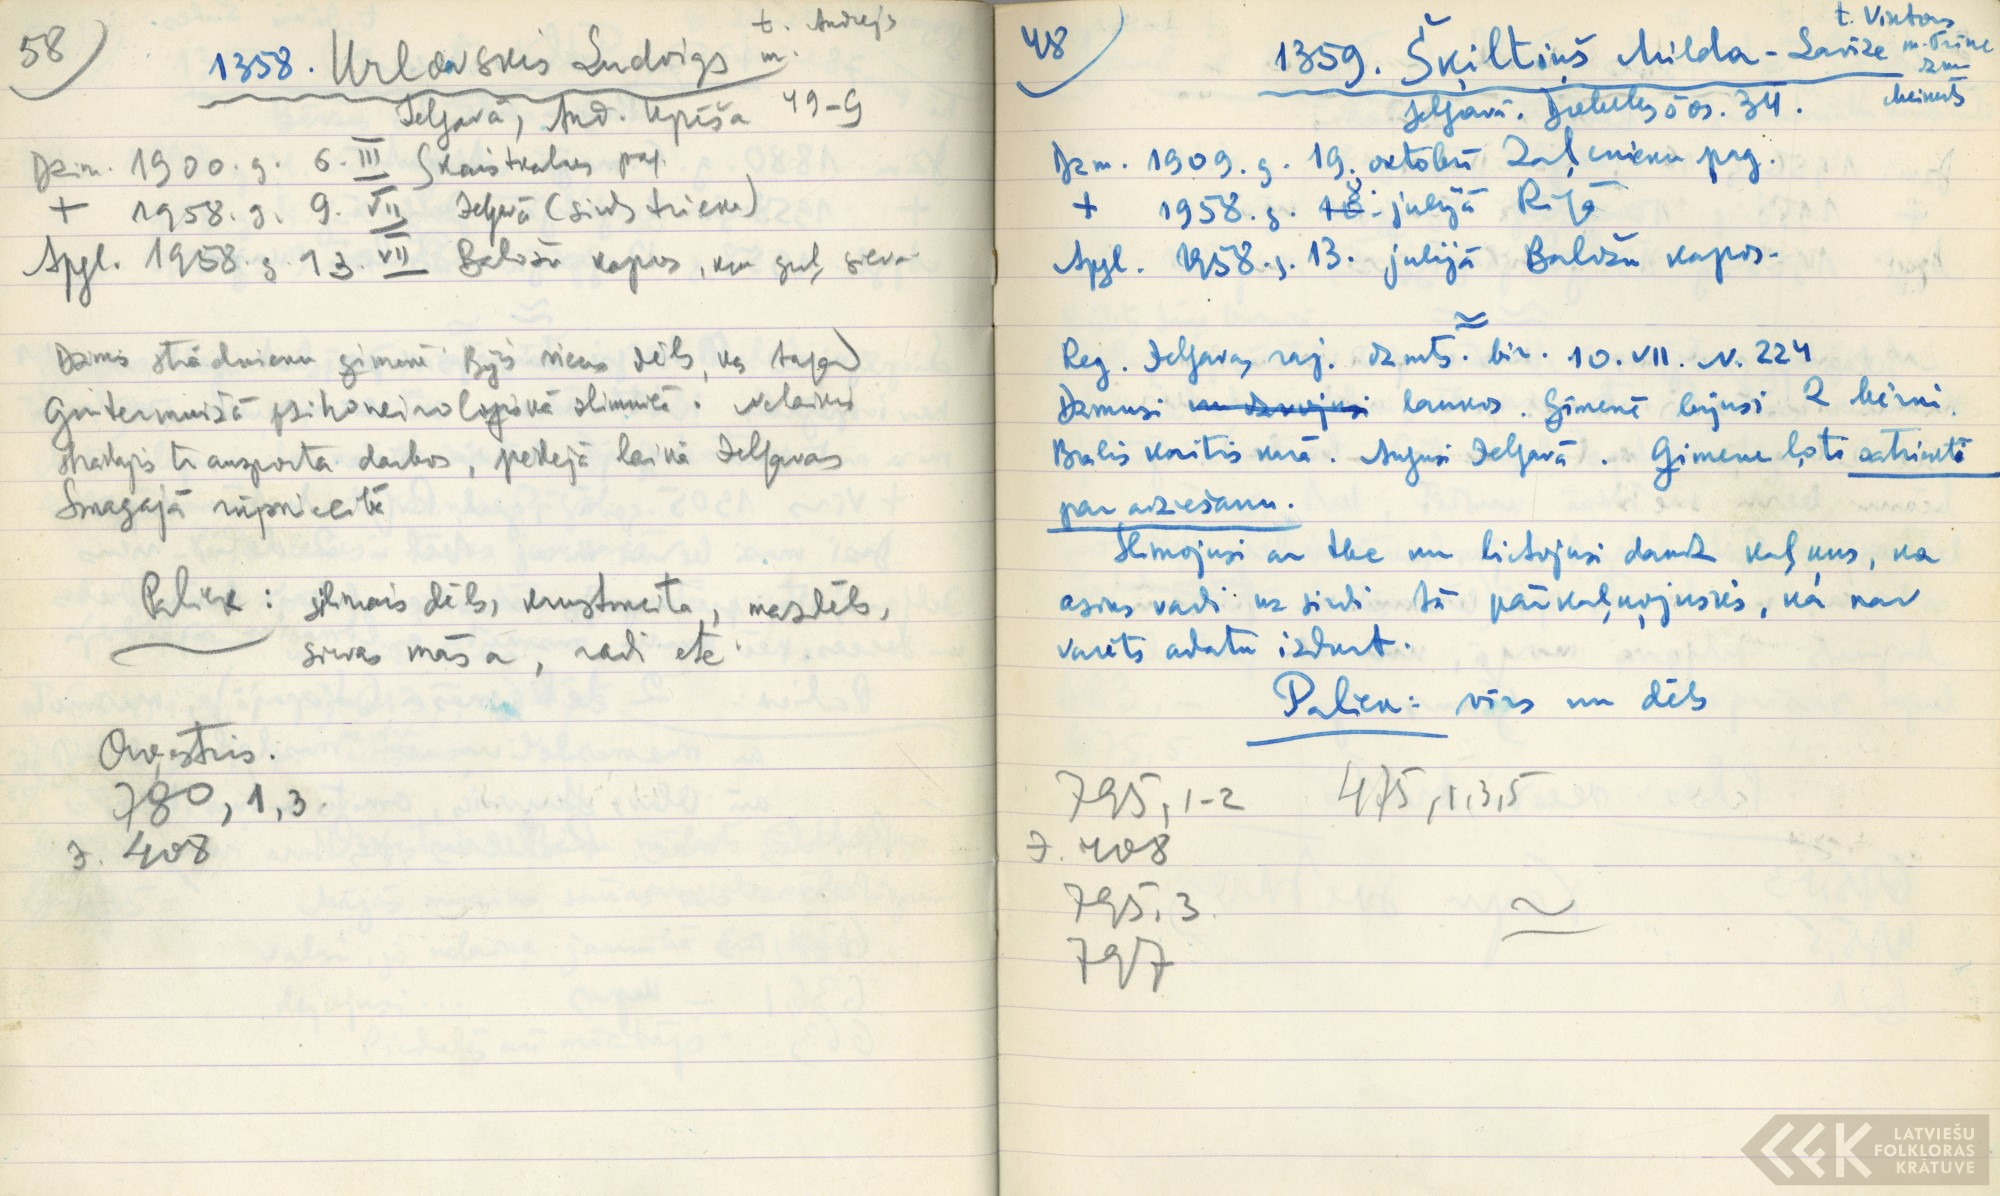 58)
t. Andrejs
1358. Urlovskis Ludvigs m.
Jelgavā, And. Upīša 49-9
Dzim. 1900. g. 6. III Skaistkalnes pag.
+ 1958. g. 9. VII Jelgavā (sirds trieka)
Apgl. 1958. g. 13. VII Baložu kapos, kur guļ sieva.
Dzimis strādnieku ģimenē. Bijis viens dēls, kas tagad
Ģintermuižā psihoneiroloģiskā slimnīcā. Nelaiķis
strādājis transporta darbos, pēdējā laikā Jelgavas
Smagajā rūpniecībā
Paliek: slimais dēls, krustmeita, mazdēls,
sievas māsa, radi etc.
Orķestris.
780, 1,3.
J. 408
48)
t. Viktors
1359. Šķiltiņš Milda-Lavīze m. Trīne
dzim.
Meinerts
Jelgavā. Dobeles šos. 34.
Dzim. 1909. g. 19. oktobrī Zaļenieku pag.
+ 1958. g. 8. jūlijā Rīgā
Apgl. 1958. g. 13. jūlijā Baložu kapos.
≈
Reg. Jelgavas raj. dzmts. bir. 10. VII. N. 224
Dzimusi laukos. Ģimenē bijusi 2 bērni.
Brālis kritis karā. Augusi Jelgavā. Ģimene ļoti satriekta
par aiziešanu.
Slimojusi ar tbc un lietojusi daudz kaļķus, ka
asins vadi uz sirdi tā pārkaļķojušies, ka nav
varēts adatu izdurt.
Paliek: vīrs un dēls
795, 1-2 475, 1,3,5
J. 408
795, 3.
797
LATVIEŠU
FOLKLORAS
KRĀTUVE